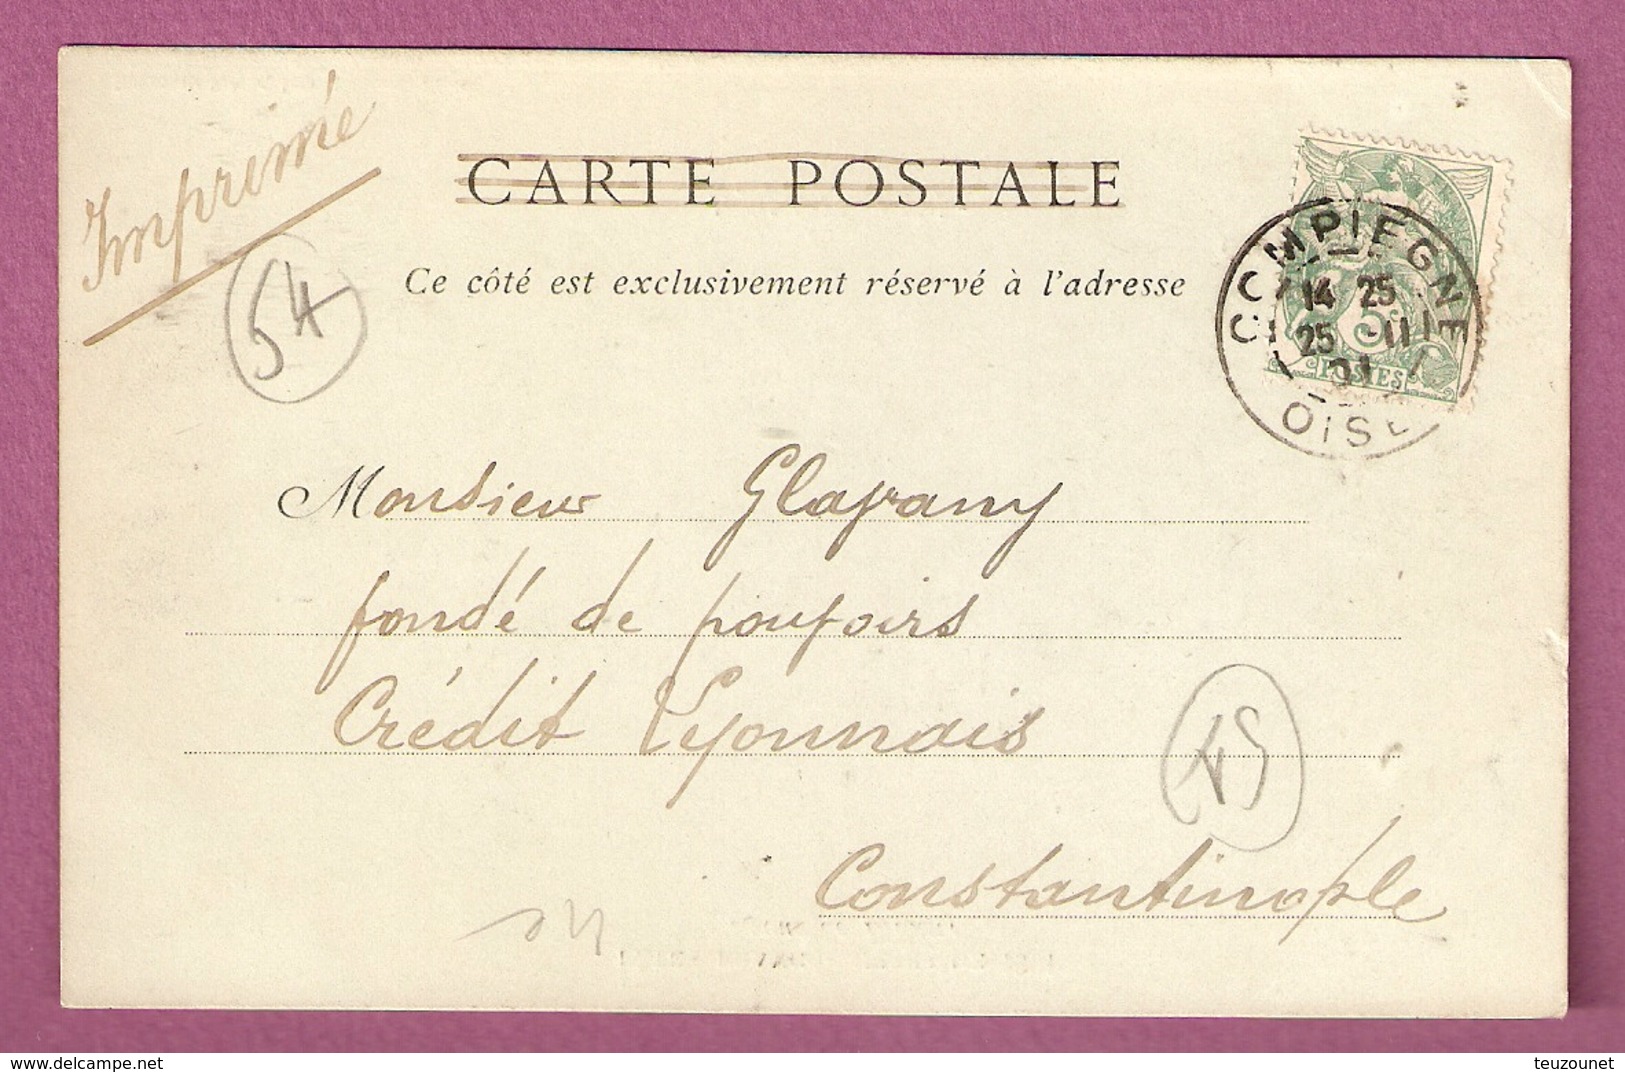 Imprimée
CARTE POSTALE
Ce côté est exclusivement réservé à l'adresse
54
COMPIEGNE
14 25
25 -11
01
OISE
5c
POSTES
Monsieur Glavany
fondé de pouvoirs
Crédit Lyonnais
Constantinople
https://www.delcampe.net
teuzounet